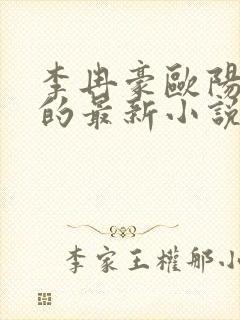 李冉豪歐陽
的最新小說
李家王權邪小